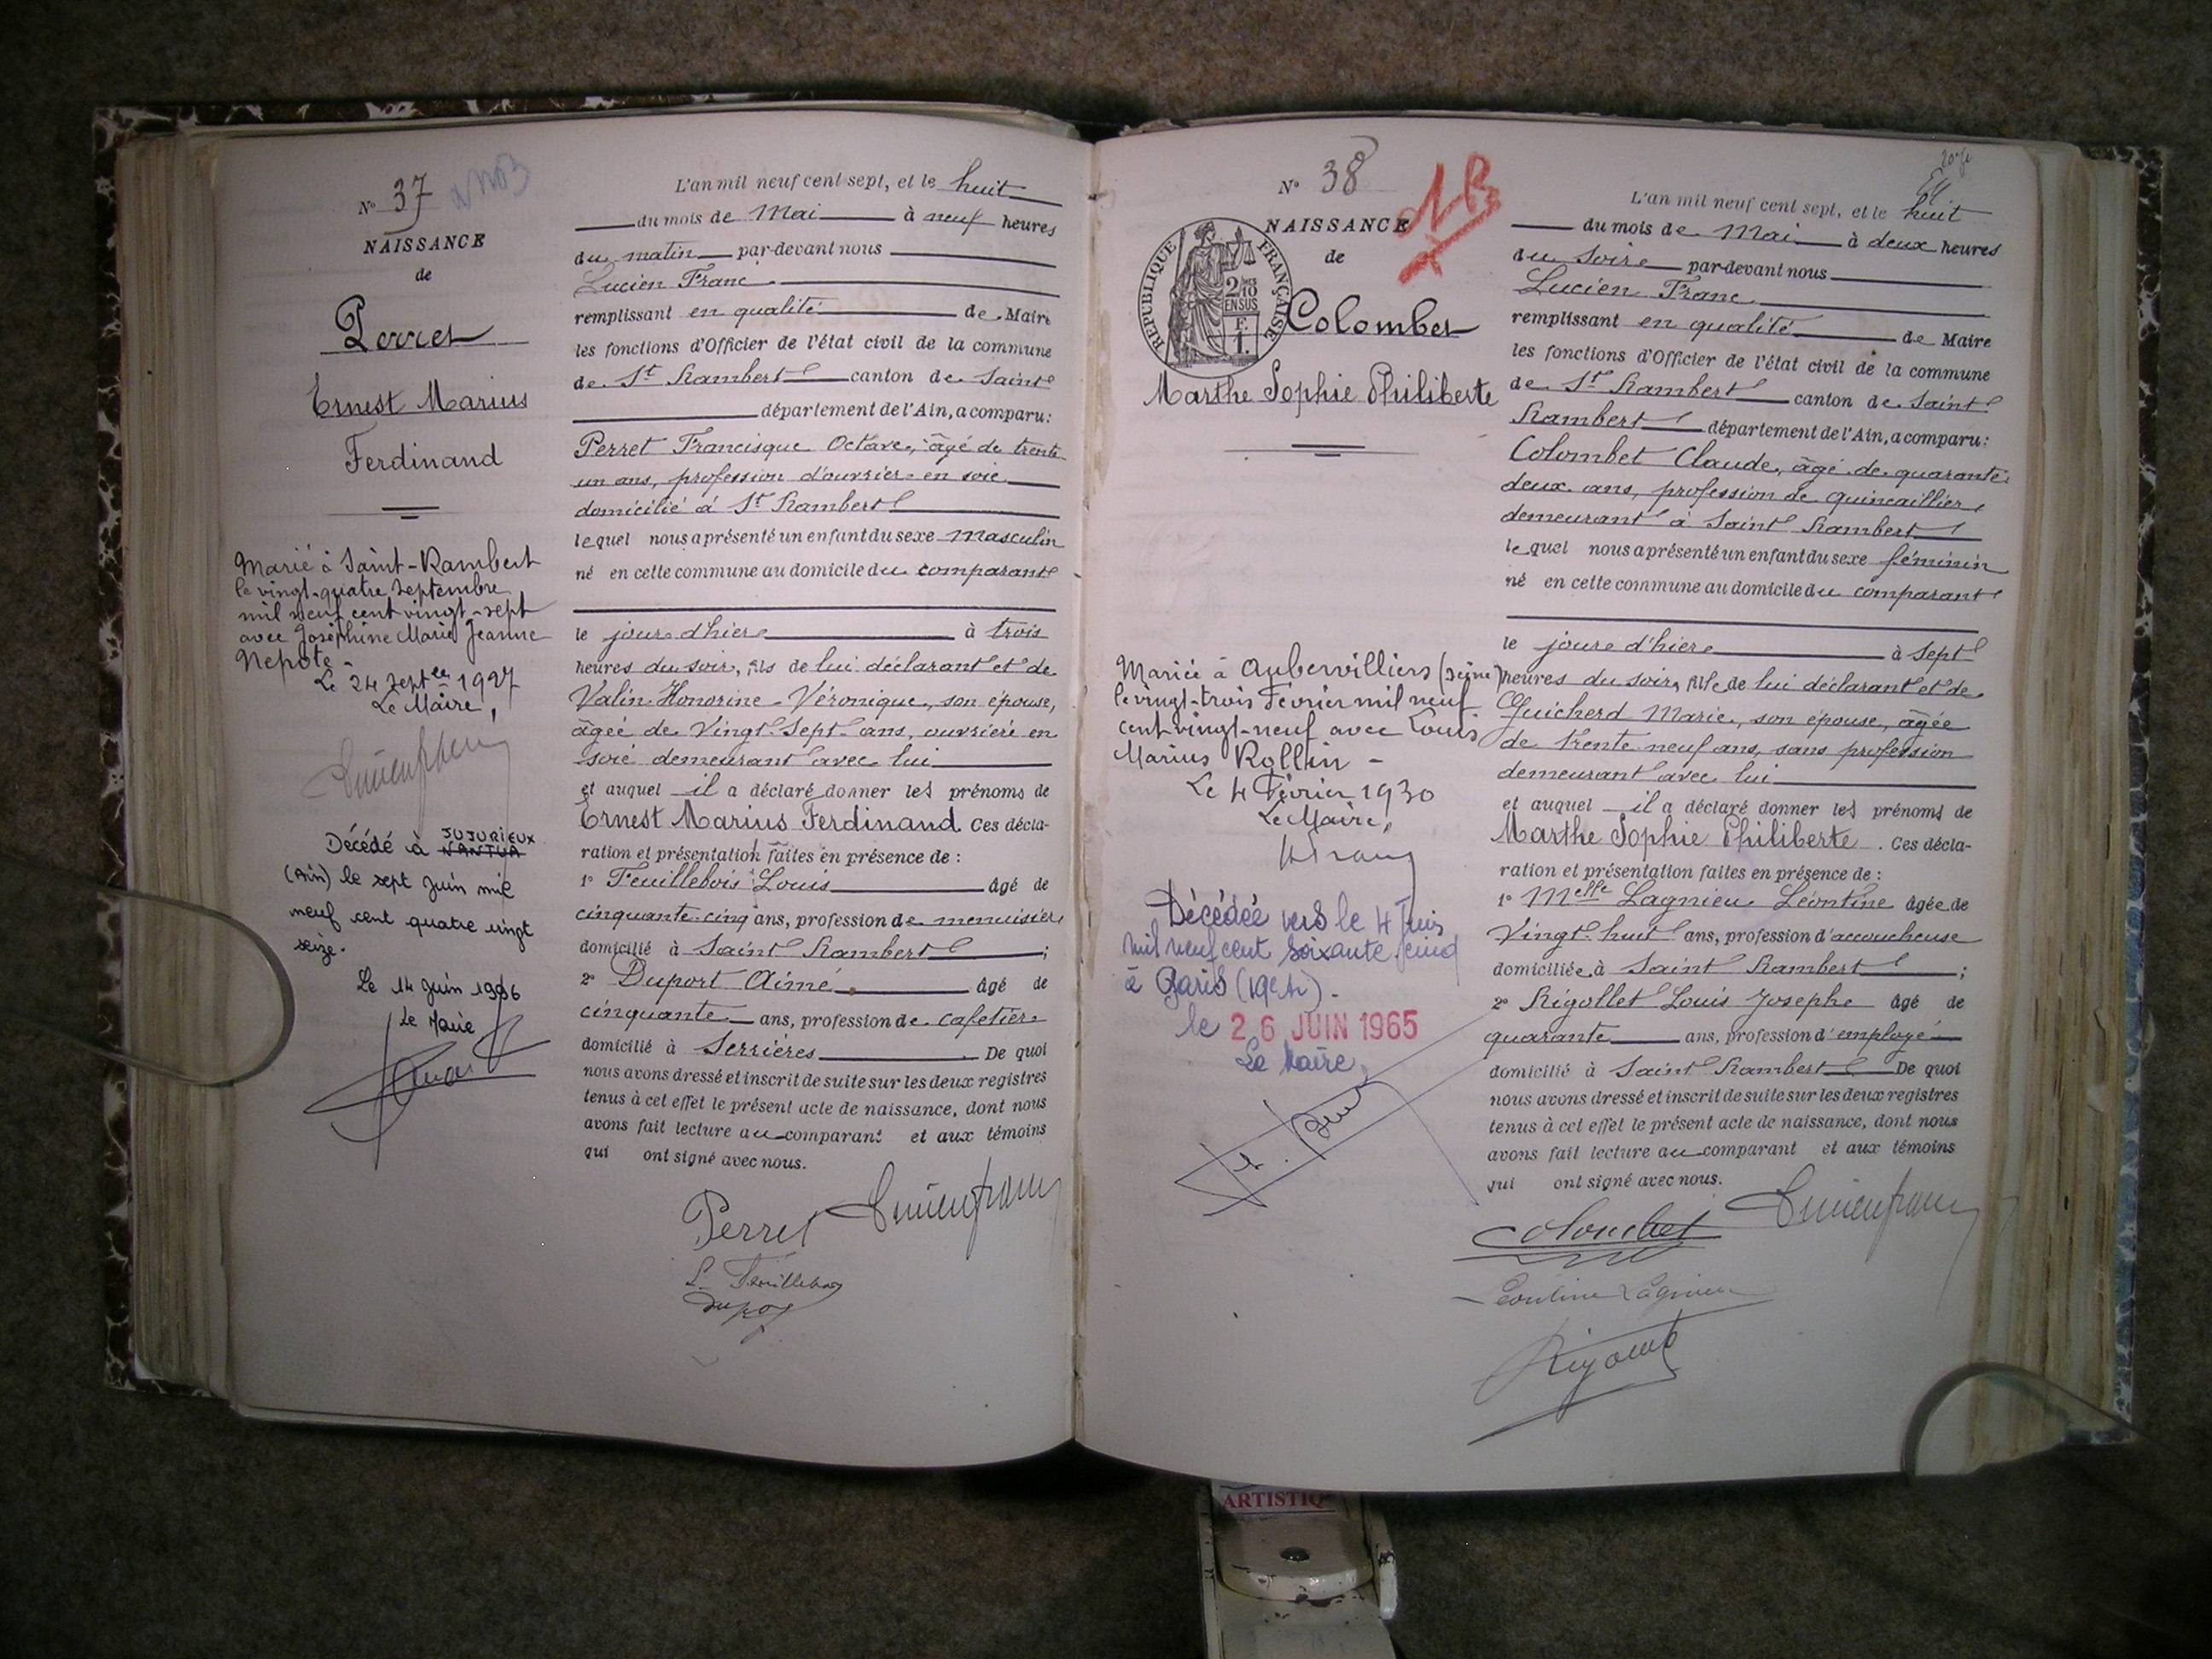 N° 37
NAISSANCE
de
Perret
Ernest Marius
Ferdinand
Marié à Saint-Rambert
le vingt-quatre septembre
mil neuf cent vingt-sept
avec Joséphine Marie Jeanne
Nepote -
Le 24 septbre 1927
Le Maire,
Décédé à NANTUA JUJURIEUX
(Ain) le sept Juin mil
neuf cent quatre vingt
seize.
Le 14 Juin 1996
Le Maire
L'an mil neuf cent sept, et le huit
du mois de Mai à neuf heures
du matin par-devant nous
Lucien Franc
remplissant en qualité de Maire
les fonctions d'Officier de l'état civil de la commune
de St Rambert canton de Saint
département de l'Ain, a comparu:
Perret Francisque Octave, âgé de trente
un ans, profession d'ouvrier en soie
domicilié à St Rambert
lequel nous a présenté un enfant du sexe masculin
né en cette commune au domicile du comparant
le jour d'hier à trois
heures du soir, fils de lui déclarant et de
Valin Honorine Véronique, son épouse,
âgée de Vingt-Sept ans, ouvrière en
soie demeurant avec lui
et auquel il a déclaré donner les prénoms de
Ernest Marius Ferdinand. Ces décla-
ration et présentation faites en présence de :
1° Feuillebois Louis âgé de
cinquante-cinq ans, profession de menuisier
domicilié à Saint Rambert ;
2° Duport Aimé âgé de
cinquante ans, profession de cafetier
domicilié à Serrières. De quoi
nous avons dressé et inscrit de suite sur les deux registres
tenus à cet effet le présent acte de naissance, dont nous
avons fait lecture au comparant et aux témoins
qui ont signé avec nous.
Perret Lucien Franc
L. Feuillebois
N° 38
1B
NAISSANCE
de
RÉPUBLIQUE FRANÇAISE
2/10
EN SUS
Colombet
Marthe Sophie Philiberte
Mariée à Aubervilliers (Seine)
le vingt-trois Février mil neuf
cent vingt-neuf avec Louis
Marius Rollin -
Le 4 Février 1930
Le Maire,
Décédée vers le 4 Juin
mil neuf cent soixante cinq
à Paris (19e Ar) -
le 26 JUIN 1965
Le Maire
L'an mil neuf cent sept, et le huit
du mois de Mai à deux heures
du soir par-devant nous
Lucien Franc
remplissant en qualité de Maire
les fonctions d'Officier de l'état civil de la commune
de St Rambert canton de Saint
Rambert département de l'Ain, a comparu:
Colombet Claude, âgé de quarante
deux ans, profession de quincaillier
demeurant à Saint Rambert
lequel nous a présenté un enfant du sexe féminin
né en cette commune au domicile du comparant
le jour d'hier à sept
heures du soir, fille de lui déclarant et de
Guicherd Marie, son épouse, âgée
de trente neuf ans, sans profession
demeurant avec lui
et auquel il a déclaré donner les prénoms de
Marthe Sophie Philiberte. Ces décla-
ration et présentation faites en présence de :
1° Melle Lagnieu Léontine âgée de
Vingt-huit ans, profession d'accoucheuse
domiciliée à Saint Rambert ;
2° Rigollet Louis Joseph âgé de
quarante ans, profession d'employé
domicilié à Saint Rambert De quoi
nous avons dressé et inscrit de suite sur les deux registres
tenus à cet effet le présent acte de naissance, dont nous
avons fait lecture au comparant et aux témoins
qui ont signé avec nous.
Colombet Lucien Franc
Léontine Lagnieu
ARTISTIQ